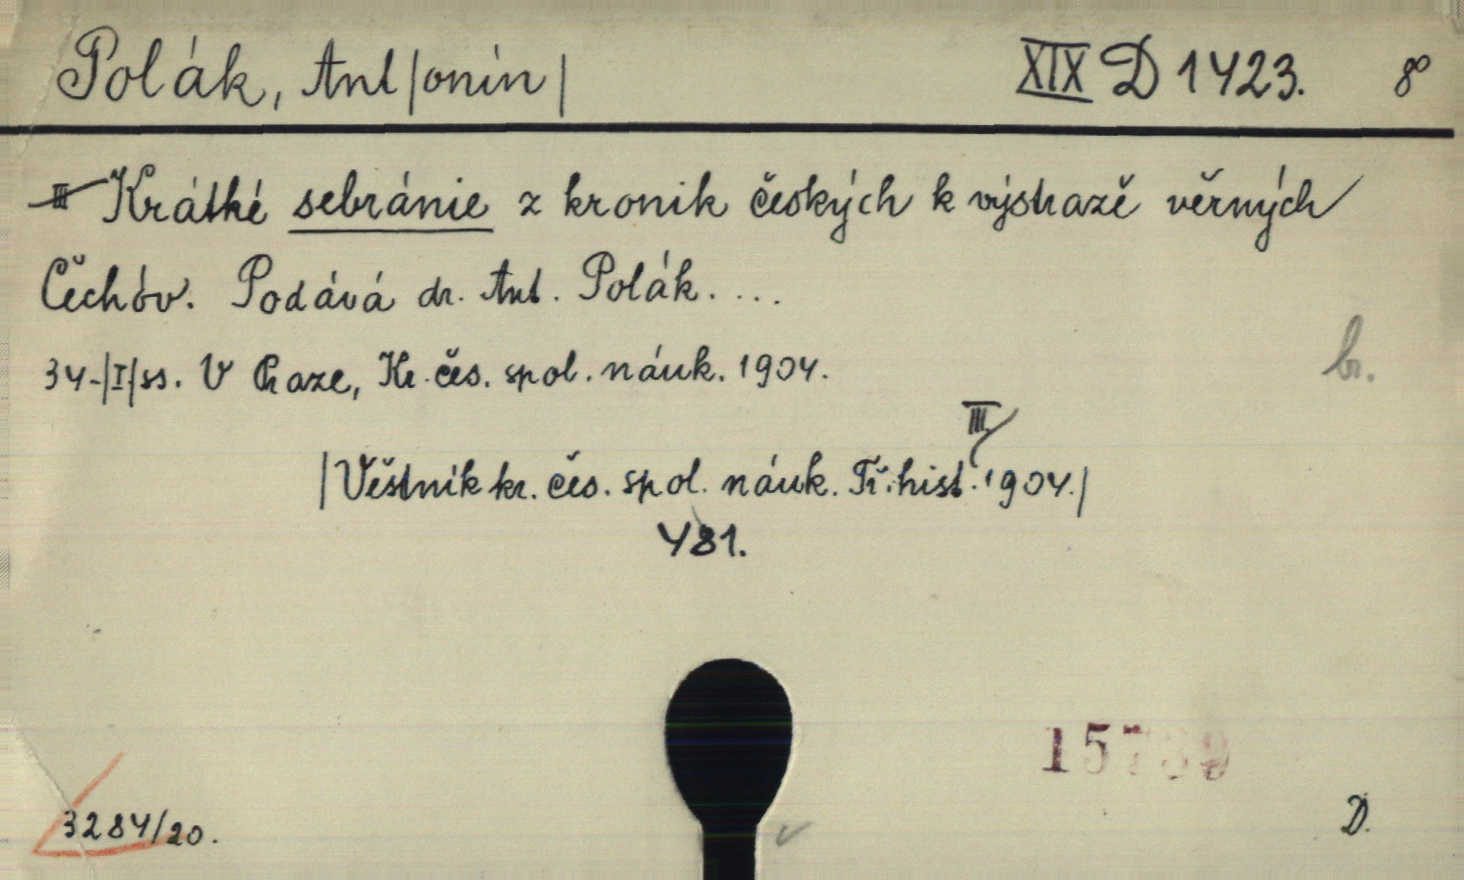 Polák, Ant/onín/ XIX D 1423. 8°
III Krátké sebránie z kronik českých k výstrazě věrných
Čechóv. Podává dr. Ant. Polák. ...
34-/I/ss. V Praze, Kr. čes. spol. náuk. 1904.
br.
III.
/Věstník kr. čes. spol. náuk. Tř. hist. 1904./
481.
3284/20.
D.